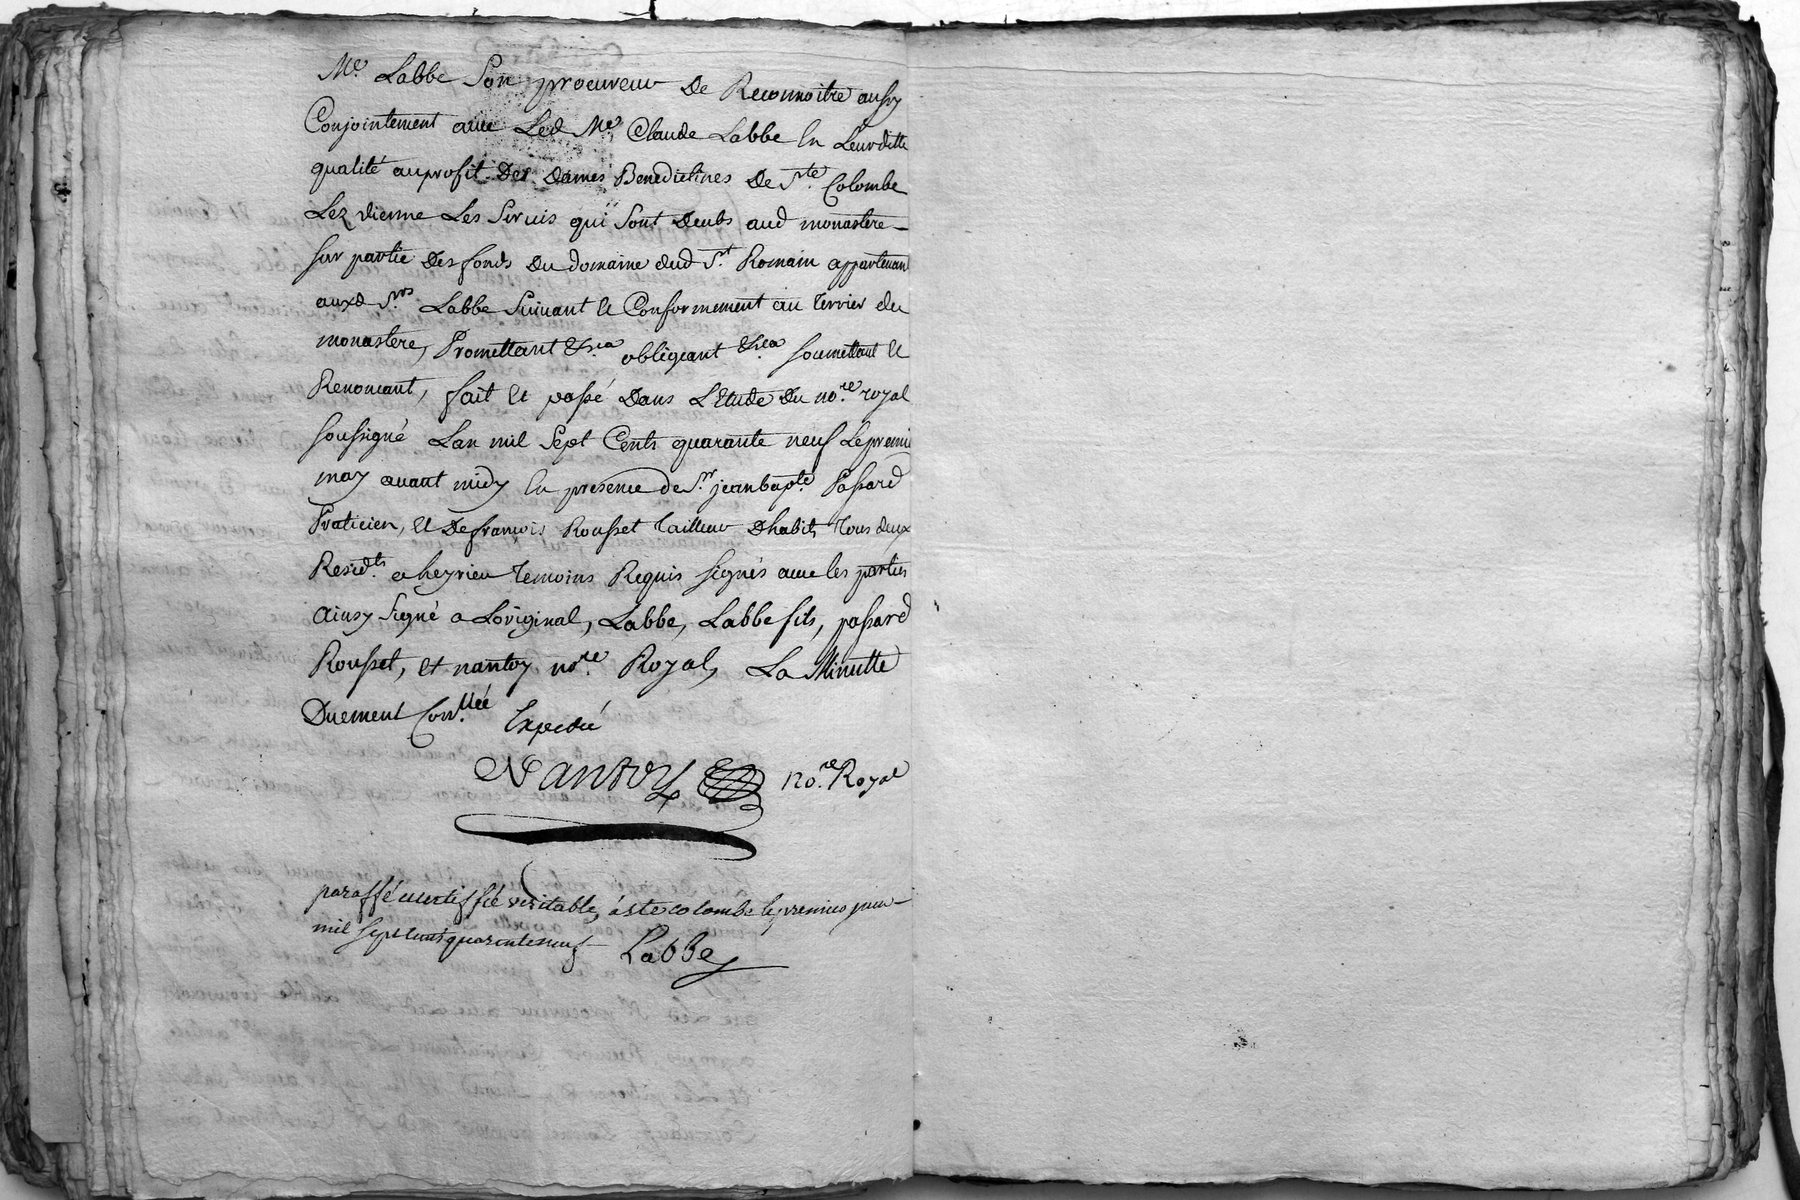 Me Labbe Son procureur de Reconnoitre aussy
Conjointement avec Led Me Claude Labbe En Leurditte
qualité au profit des dames Benedictines de Ste Colombe
Lez vienne Les Servis qui sont deubs aud monastere
sur partie des fonds du domaine dud St Romain appartenan
auxd Srs Labbe Suivant et Conformement au terrier du
monastere, Promettant &ca obligeant &ca soumettant et
Renoncant, fait et passé dans L'Etude du no.re royal
soussigné Lan mil Sept Cents quarante neuf Le premi
may avant midy En presence de Sr jean bapte. Passard
Praticien, et de francois Rousset tailleur dhabits tous deux
Resid.ts a heyrieu temoins Requis signés avec les parties
Ainsy signé a Loriginal, Labbe, Labbe fils, passard
Rousset, et nantoy no.re Royal, La Minutte
Duement Con.llée Expedié
Nantoy no.re Royal
paraffé certiffié veritable, á ste colombe le premier juin
mil sept cent quarente neuf Labbe